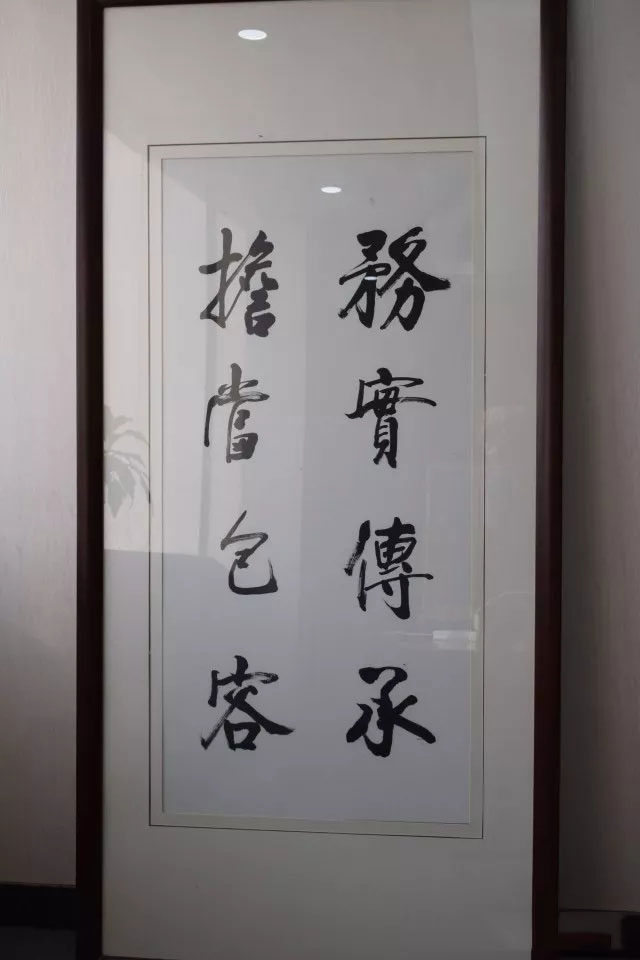 務實傳承
擔當包容